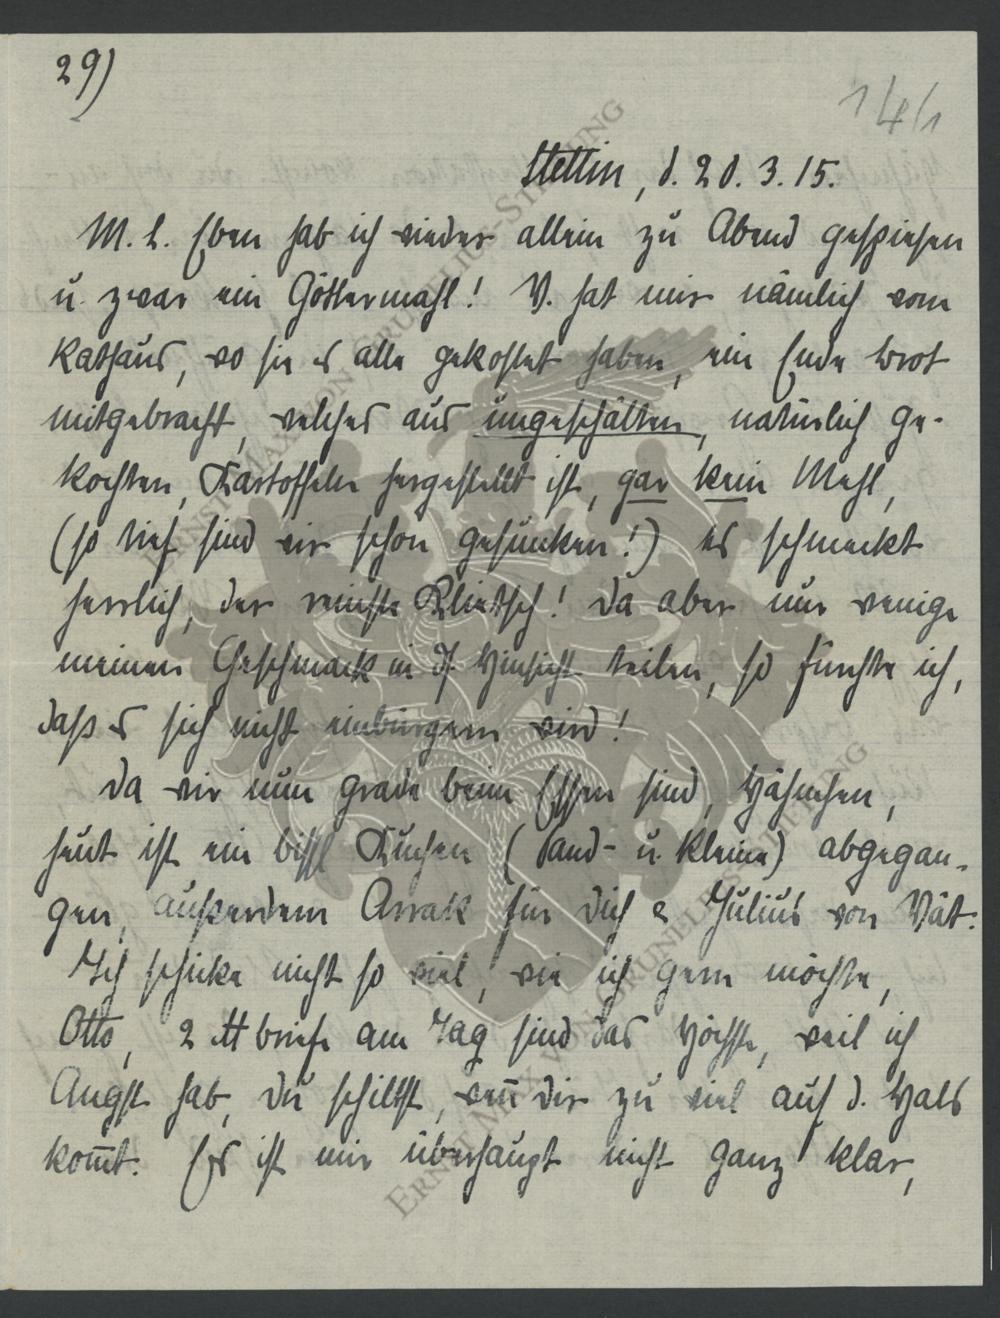 29)
1/4/1
Stettin, d. 20. 3. 15.
M. L. Eben hab ich wieder allein zu Abend gespiesen
u. zwar ein Göttermahl! V. hat mir nämlich vom
Rathaus, wo sie es alle gekostet haben, ein Ende Brot
mitgebracht, welches aus ungeschälten, natürlich ge-
kochten, Kartoffeln hergestellt ist, gar kein Mehl,
(so tief sind wir schon gesunken!) es schmeckt
herrlich, der reinste Klietsch! Da aber nur wenige
meinen Geschmack in d. Hinsicht teilen, so fürchte ich,
daß es sich nicht einbürgern wird!
Da wir nun grade beim Essen sind, Hähnchen,
heut ist ein bissl Kuchen (Sand- u. kleine) abgegan-
gen, außerdem Arrak für dich & Julius von Vat.
Ich schicke nicht so viel, wie ich gern möchte,
Otto, 2 ℔ briefe am Tag sind das Höchste, weil ich
Angst hab, du schiltst, wen̄ dir zu viel auf d. Hals
kom̄t. Es ist mir überhaupt nicht ganz klar,
ERNST MAX VON GRUNELIUS-STIFTUNG
ERNST MAX VON GRUNELIUS-STIFTUNG